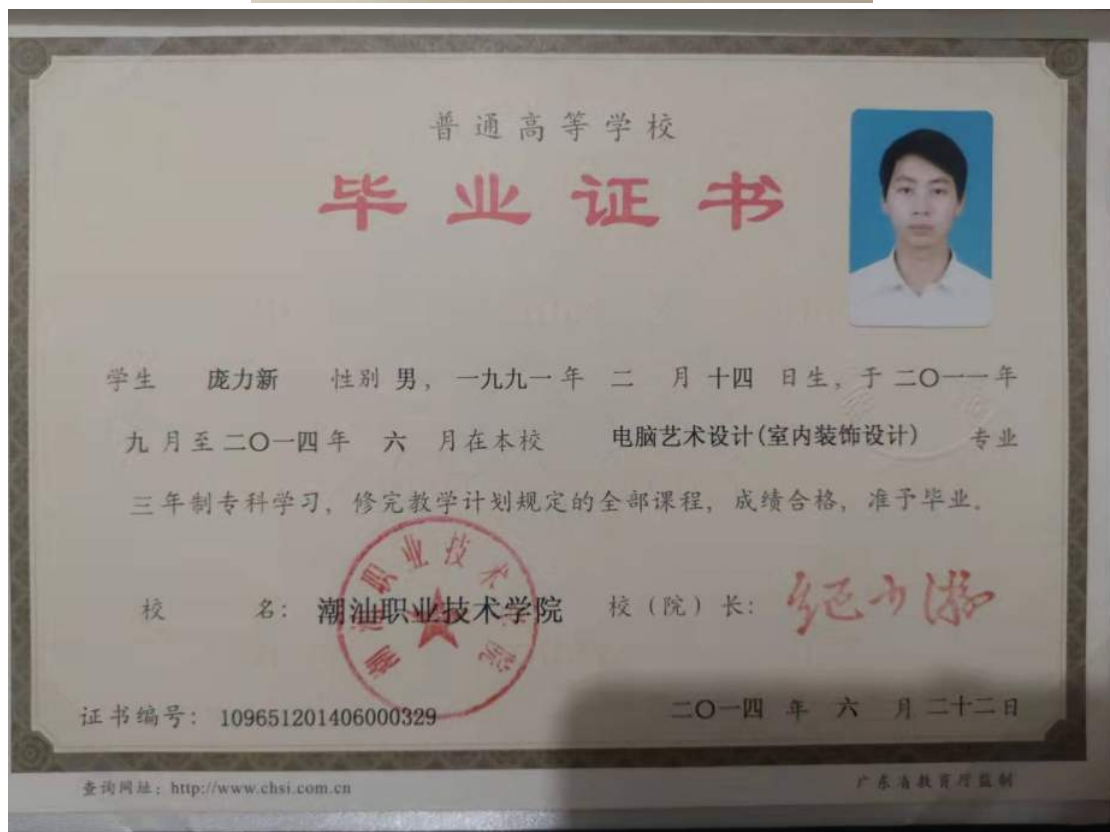 普通高等学校
毕业证书
学生 庞力新 性别 男，一九九一年 二 月 十四 日生，于二〇一一年
九 月至 二〇一四年 六 月在本校 电脑艺术设计(室内装饰设计) 专业
三年制专科学习，修完教学计划规定的全部课程，成绩合格，准予毕业。
潮汕职业技术学院
校 名：潮汕职业技术学院 校（院）长：
证书编号：109651201406000329 二〇一四 年 六 月 二十二日
查询网址：http://www.chsi.com.cn 广东省教育厅监制